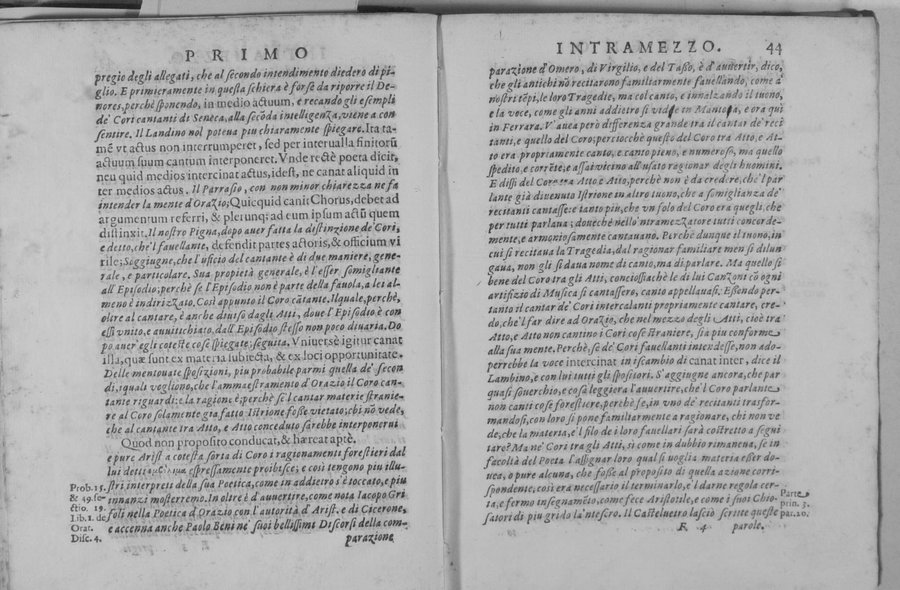 PRIMO
pregio degli allegati, che al secondo intendimento diedero di pi-
glio. E primieramente in questa schiera è forse da riporre il De-
nores, perchè sponendo, in medio actuum, e recando gli esempli
de' Cori cantanti di Seneca, alla secōda intelligenza, viene a con-
sentire. Il Landino nol poteua piu chiaramente spiegare. Ita ta-
mē vt actus non interrumperet, sed per interualla finitorū
actuum suum cantum interponeret. Vnde rectè poeta dicit,
neu quid medios intercinat actus, idest, ne canat aliquid in
ter medios actus. Il Parrasio, con non minor chiarezza ne fa
intender la mente d'Orazio; Quicquid canit Chorus, debet ad
argumentum referri, & plerunq; ad eum ipsum actū quem
distinxit. Il nostro Pigna, dopo auer fatta la distinzione de' Cori,
e detto, che'l fauellante, defendit partes actoris, & officium vi
rile; Soggiugne, che l'uficio del cantante è di due maniere, gene-
rale, e particolare. Sua propietà generale, è l'esser somigliante
all'Episodio; perchè se l'Episodio non è parte della fauola, a lei al-
meno è indirizzato. Così appunto il Coro cātante. Il quale, perchè,
oltre al cantare, è anche diuiso dagli Atti, doue l'Episodio è con
essi vnito, e auuitichiato, dall'Episodio stesso non poco diuaria. Do
po auer'egli coteste cose spiegate; seguita. Vniuersè igitur canat
illa, quæ sunt ex materia subiecta, & ex loci opportunitate.
Delle mentouate sposizioni, piu probabile parmi quella de' secon
di, i quali vogliono, che l'ammaestramento d'Orazio il Coro can-
tante riguardi: e la ragione; perchè se'l cantar materie stranie-
re al Coro solamente gia fatto Istrione fosse vietato; chi nō vede,
che al cantante tra Atto, e Atto conceduto sarebbe interponerui
Quod non proposito conducat, & hæreat aptè.
e pure Arist. a cotesta sorta di Coro i ragionamenti forestieri dal
lui detti espressamente proibisce; e così tengono piu illu-
stri interpreti della sua Poetica, come in addietro s'è toccato, e piu
innanzi mosterremo. In oltre è d'auuertire, come nota Iacopo Gri
foli nella Poetica d'Orazio con l'autorità d'Arist. e di Cicerone,
e accenna anche Paolo Beni ne' suoi bellissimi Discorsi della com-
parazione
Prob. 15.
& 49. se-
ctio. 19.
Lib. 1. de
Orat.
Disc. 4.
INTRAMEZZO. 44
parazione d'Omero, di Virgilio, e del Tasso, è d'auuertir, dico,
che gli antichi nō recitarono familiarmente fauellando, come a'
nostri tēpi, le loro Tragedie, ma col canto, e innalzando il tuono,
e la voce, come gli anni addietro si vide in Mantoua, e ora qui
in Ferrara. V'auea però differenza grande tra il cantar de' reci
tanti, e quello del Coro; perciocchè questo del Coro tra Atto, e At-
to era propriamente canto, e canto pieno, e numeroso, ma quello
spedito, e corrēte, e assai vicino all'usato ragionar degli huomini.
E dissi del Coro tra Atto e Atto, perchè non è da credere, che'l par
lante già diuenuto Istrione in altro tuono, che a somiglianza de'
recitanti cantasse: e tanto piu, che vn solo del Coro era quegli, che
per tutti parlaua; doue che nello'ntramezzatore tutti concorde-
mente, e armoniosamente cantauano. Perchè dunque il tuono, in
cui si recitaua la Tragedia, dal ragionar familiare men si dilun
gaua, non gli si daua nome di canto, ma di parlare. Ma quello si
bene del Coro tra gli Atti, conciossachè le di lui Canzoni cō ogni
artifizio di Musica si cantassero, canto appellauasi. Essendo per-
tanto il cantar de' Cori intercalanti propriamente cantare, cre-
do, che'l far dire ad Orazio, che nel mezzo degli Atti, cioè tra
Atto, e Atto non cantino i Cori cose straniere, sia piu conforme
alla sua mente. Perchè, se de' Cori fauellanti intendesse, non ado-
perrebbe la voce intercinat in iscambio di canat inter, dice il
Lambino, e con lui tutti gli spositori. S'aggiugne ancora, che par
quasi souerchio, e cosa leggiera l'auuertire, che'l Coro parlante
non canti cose forestiere, perchè se, in vno de' recitanti trasfor-
mandosi, con loro si pone familiarmente a ragionare, chi non ve
de, che la materia, e'l filo de i loro fauellari sarà costretto a segui
tare? Ma ne' Cori tra gli Atti, si come in dubbio rimaneua, se in
facoltà del Poeta l'assignar loro qual si uoglia materia esser do-
uea, o pure alcuna, che fosse al proposito di quella azione corri-
spondente, così era necessario il terminarlo, e'l darne regola cer-
ta, e fermo insegnamēto, come fece Aristotile, e come i suoi Chio-
satori di piu grido la'ntesero. Il Casteluetro lasciò scritte queste
F 4 parole.
Parte
prin. 3.
par. 20.